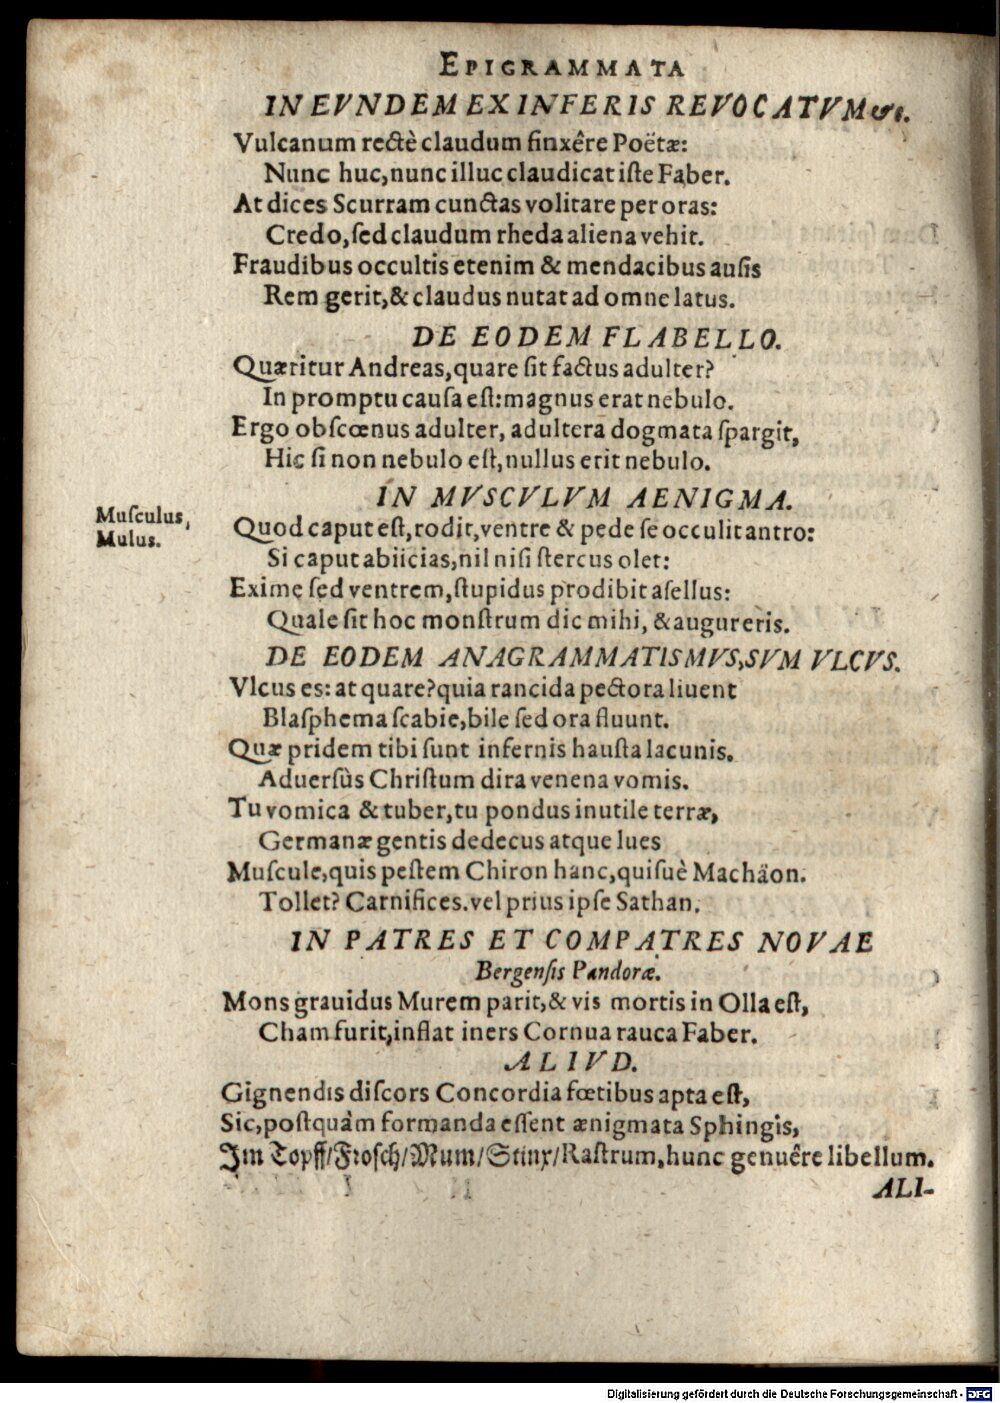 EPIGRAMMATA
IN EVNDEM EX INFERIS REVOCATVM &c.
Vulcanum rectè claudum finxêre Poëtæ:
Nunc huc, nunc illuc claudicat iſte Faber.
At dices Scurram cunctas volitare per oras:
Credo, ſed claudum rheda aliena vehit.
Fraudibus occultis etenim & mendacibus auſis
Rem gerit, & claudus nutat ad omne latus.
DE EODEM FLABELLO.
Quæritur Andreas, quare ſit factus adulter?
In promptu cauſa eſt: magnus erat nebulo.
Ergo obſcœnus adulter, adultera dogmata ſpargit,
Hic ſi non nebulo eſt, nullus erit nebulo.
IN MVSCVLVM AENIGMA.
Muſculus,
Mulus.
Quod caput eſt, rodit, ventre & pede ſe occulit antro:
Si caput abiicias, nil niſi ſtercus olet:
Exime ſed ventrem, ſtupidus prodibit aſellus:
Quale ſit hoc monſtrum dic mihi, & augur eris.
DE EODEM ANAGRAMMATISMVS, SVM VLCVS.
Vlcus es: at quare? quia rancida pectora liuent
Blaſphema ſcabie, bile ſed ora fluunt.
Quæ pridem tibi ſunt infernis hauſta lacunis.
Aduerſùs Chriſtum dira venena vomis.
Tu vomica & tuber, tu pondus inutile terræ,
Germanæ gentis dedecus atque lues
Muſcule, quis peſtem Chiron hanc, quiſuè Machäon.
Tollet? Carnifices. vel prius ipſe Sathan.
IN PATRES ET COMPATRES NOVAE
Bergenſis Pandoræ.
Mons grauidus Murem parit, & vis mortis in Olla eſt,
Cham furit, inflat iners Cornua rauca Faber.
ALIVD.
Gignendis diſcors Concordia fœtibus apta eſt,
Sic, poſtquàm formanda eſſent ænigmata Sphingis,
Im Topff/Froſch/Mum/Stinx/Raſtrum, hunc genuêre libellum.
ALI-
Digitalisierung gefördert durch die Deutsche Forschungsgemeinschaft - DFG